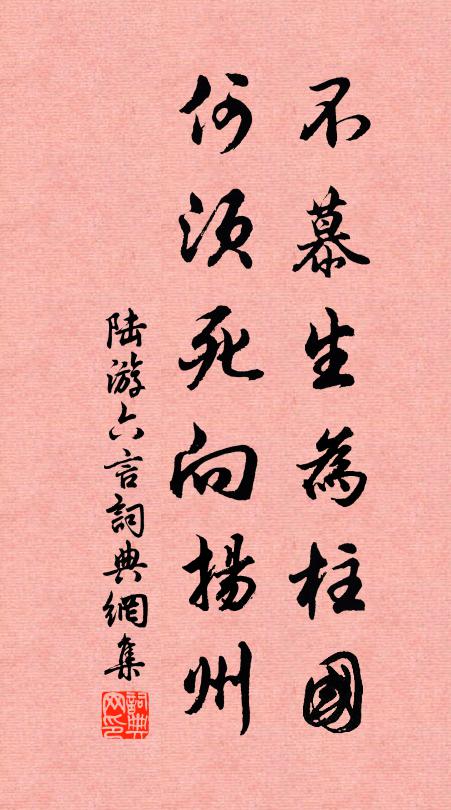 不慕生為柱國
何須死向揚州
陸游六言詞典網集
詞典网印